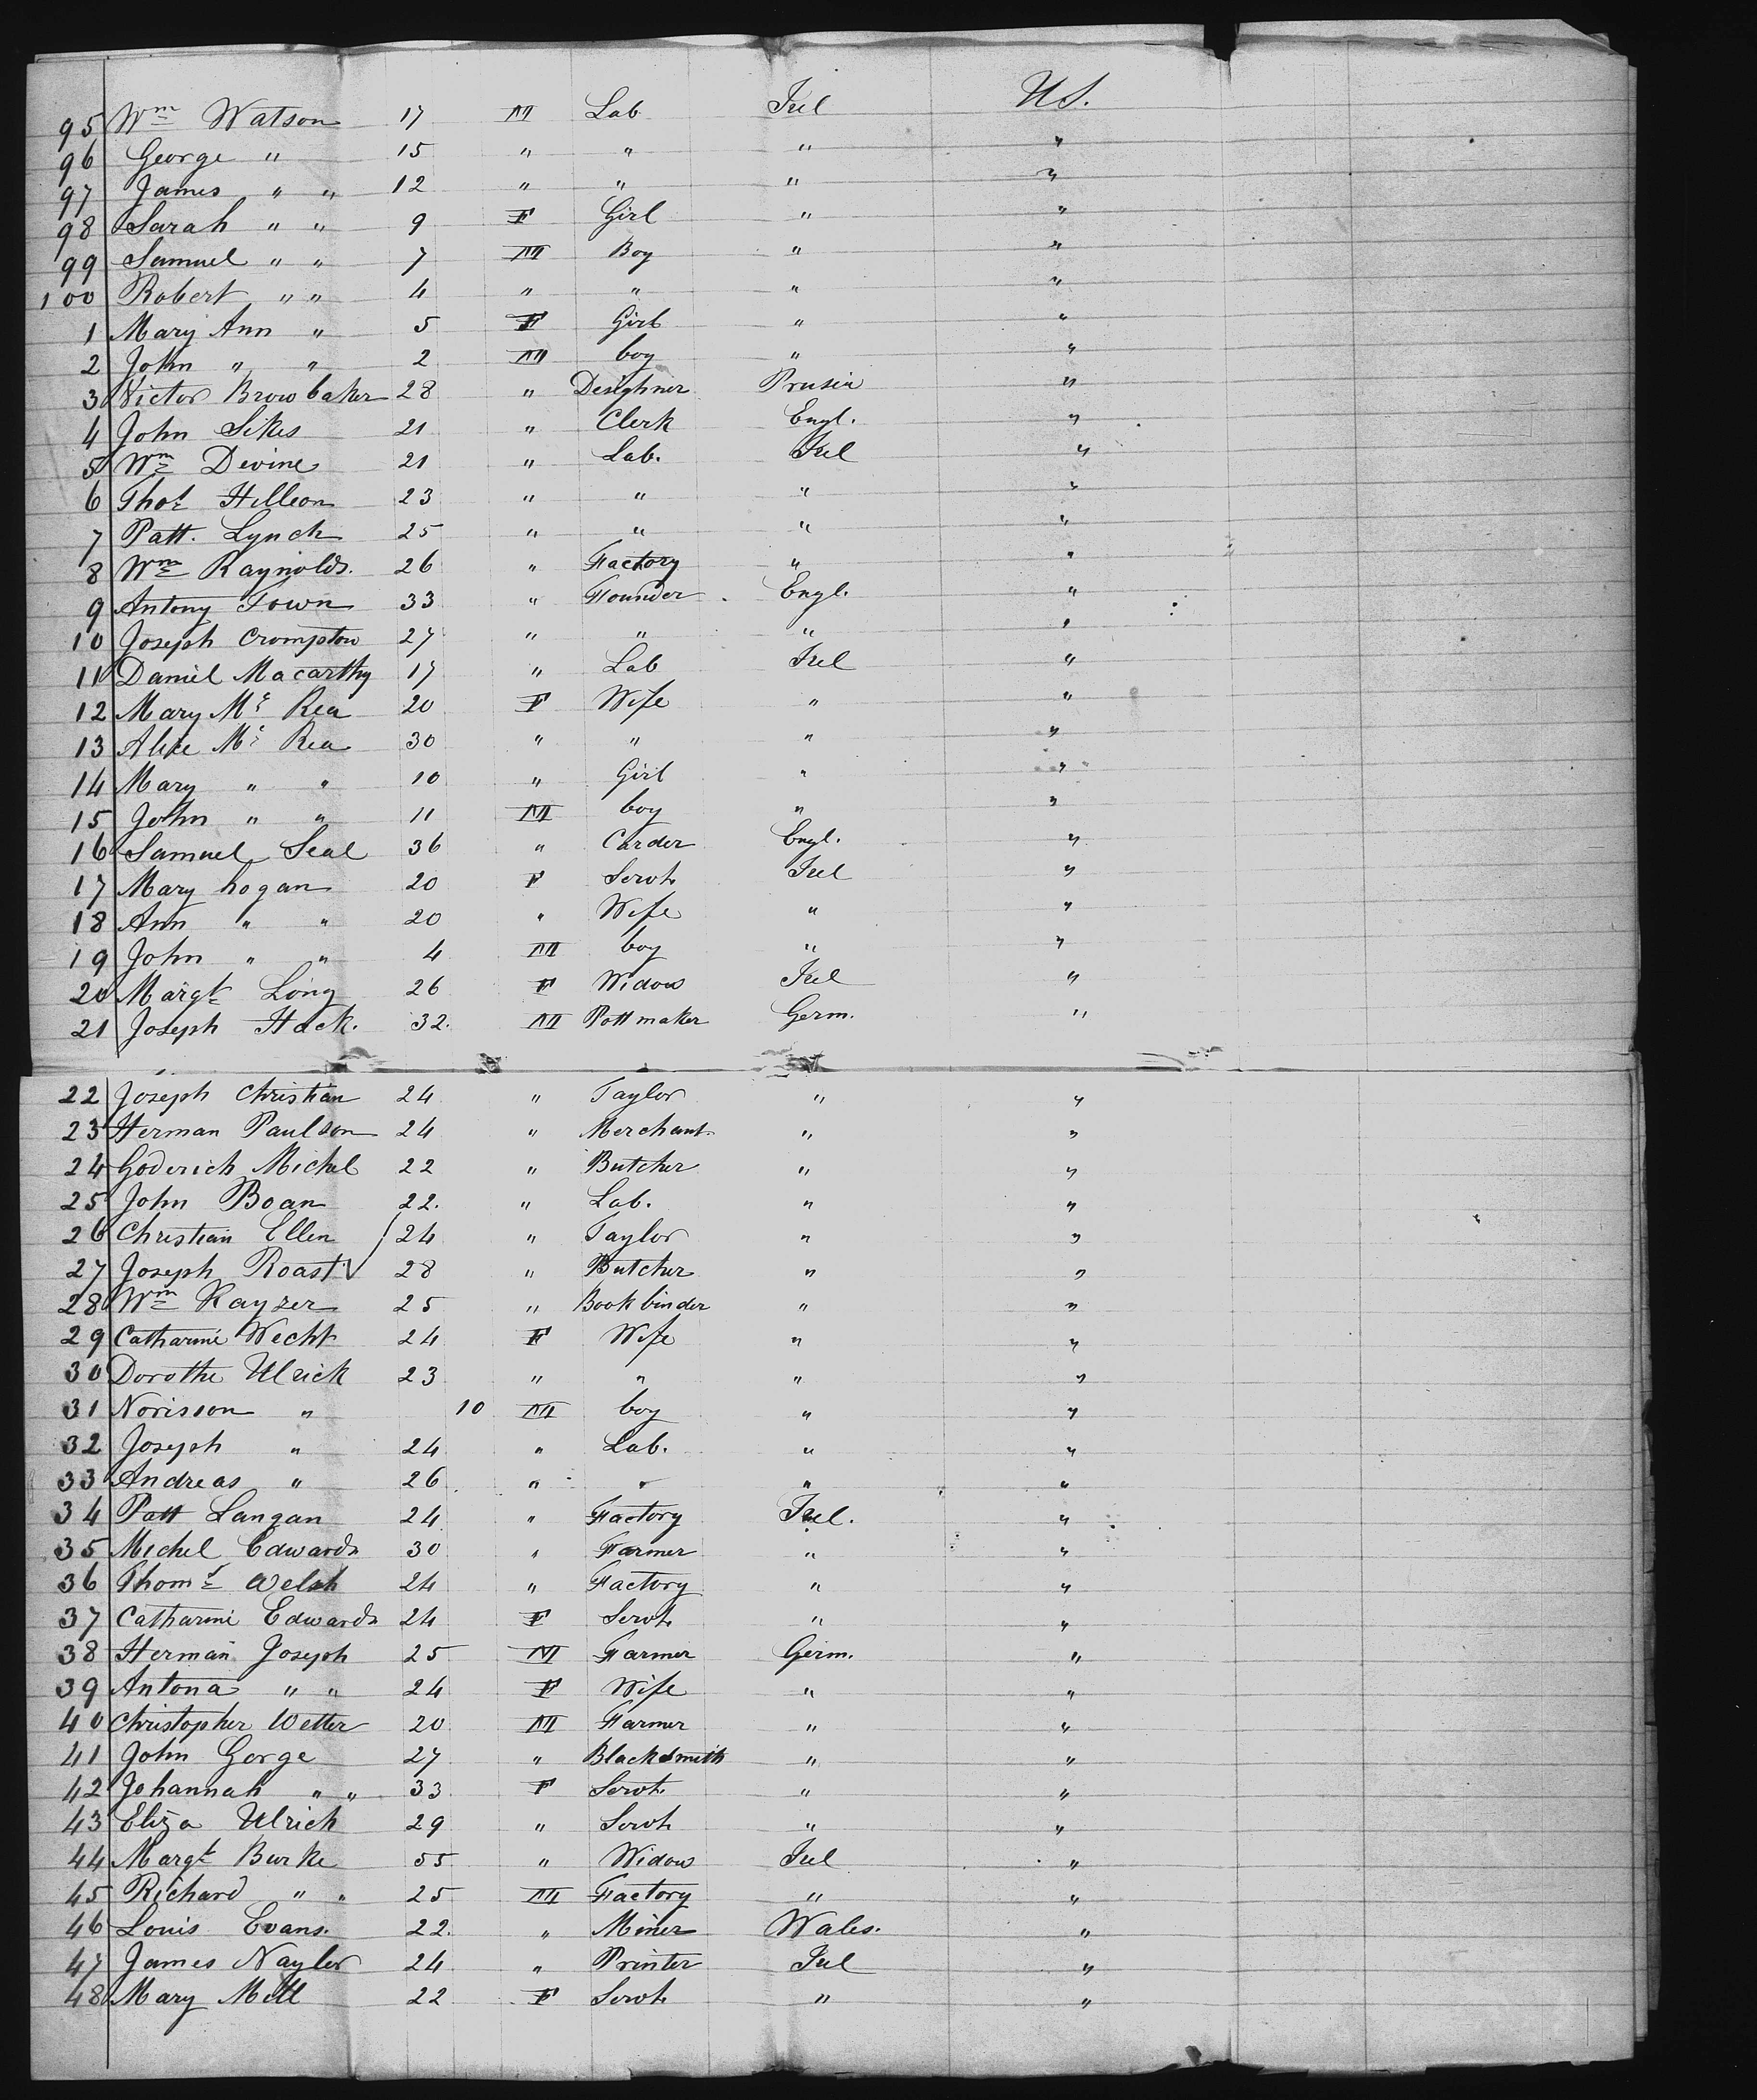 95 Wm Watson 17 M Lab Irel US.
96 George " 15 " " " "
97 James " " 12 " " " "
98 Sarah " " 9 F Girl " "
99 Samuel " " 7 M Boy " "
100 Robert " " 4 " " " "
1 Mary Ann " 5 F Girl " "
2 John " " 2 M boy " "
3 Victor Browbaker 28 " Desighner Prusia "
4 John Sikes 21 " Clerk Engl. "
5 Wm Devine 21 " Lab. Irel "
6 Thos Hilleon 23 " " " "
7 Patt. Lynch 25 " " " "
8 Wm Raynolds. 26 " Factory " "
9 Antony Town 33 " Founder Engl. "
10 Joseph Crompton 27 " " " "
11 Daniel Macarthy 17 " Lab Irel "
12 Mary Mc Rea 20 F Wife " "
13 Alice Mc Rea 30 " " " "
14 Mary " " 10 " Girl " "
15 John " " 11 M boy " "
16 Samuel Seal 36 " Carder Engl. "
17 Mary hogan 20 F Servt. Irel "
18 Ann " " 20 " Wife " "
19 John " " 4 M boy " "
20 Margt Long 26 F Widow Irel "
21 Joseph Hack. 32. M Pottmaker Germ. "
22 Joseph Christian 24 " Taylor " "
23 Herman Paulson 24 " Merchant " "
24 Goderich Michel 22 " Butcher " "
25 John Boan 22. " Lab. " "
26 Christian Ellen 24 " Taylor " "
27 Joseph Roast 28 " Butcher " "
28 Wm Kayzer 25 " Bookbinder " "
29 Catharine Wecht 24 F Wife " "
30 Dorothe Ulrick 23 " " " "
31 Norison " 10 M boy " "
32 Joseph " 24 " Lab. " "
33 Andreas " 26 " " " "
34 Patt Langan 24 " Factory Irel. "
35 Michel Edwards 30 " Farmer " "
36 Thoms Welsh 24 " Factory " "
37 Catharine Edwards 24 F Servt. " "
38 Herman Joseph 25 M Farmer Germ. "
39 Antona " " 24 F Wife " "
40 Christopher Wetter 20 M Farmer " "
41 John Gorge 27 " Blacksmith " "
42 Johannah " " 33 F Servt. " "
43 Eliza Ulrich 29 " Servt. " "
44 Margt Burke 55 " Widow Irel "
45 Richard " " 25 M Factory " "
46 Louis Evans. 22. " Miner Wales. "
47 James Naylor 24 " Printer Irel "
48 Mary Mell 22 F Servt. " "